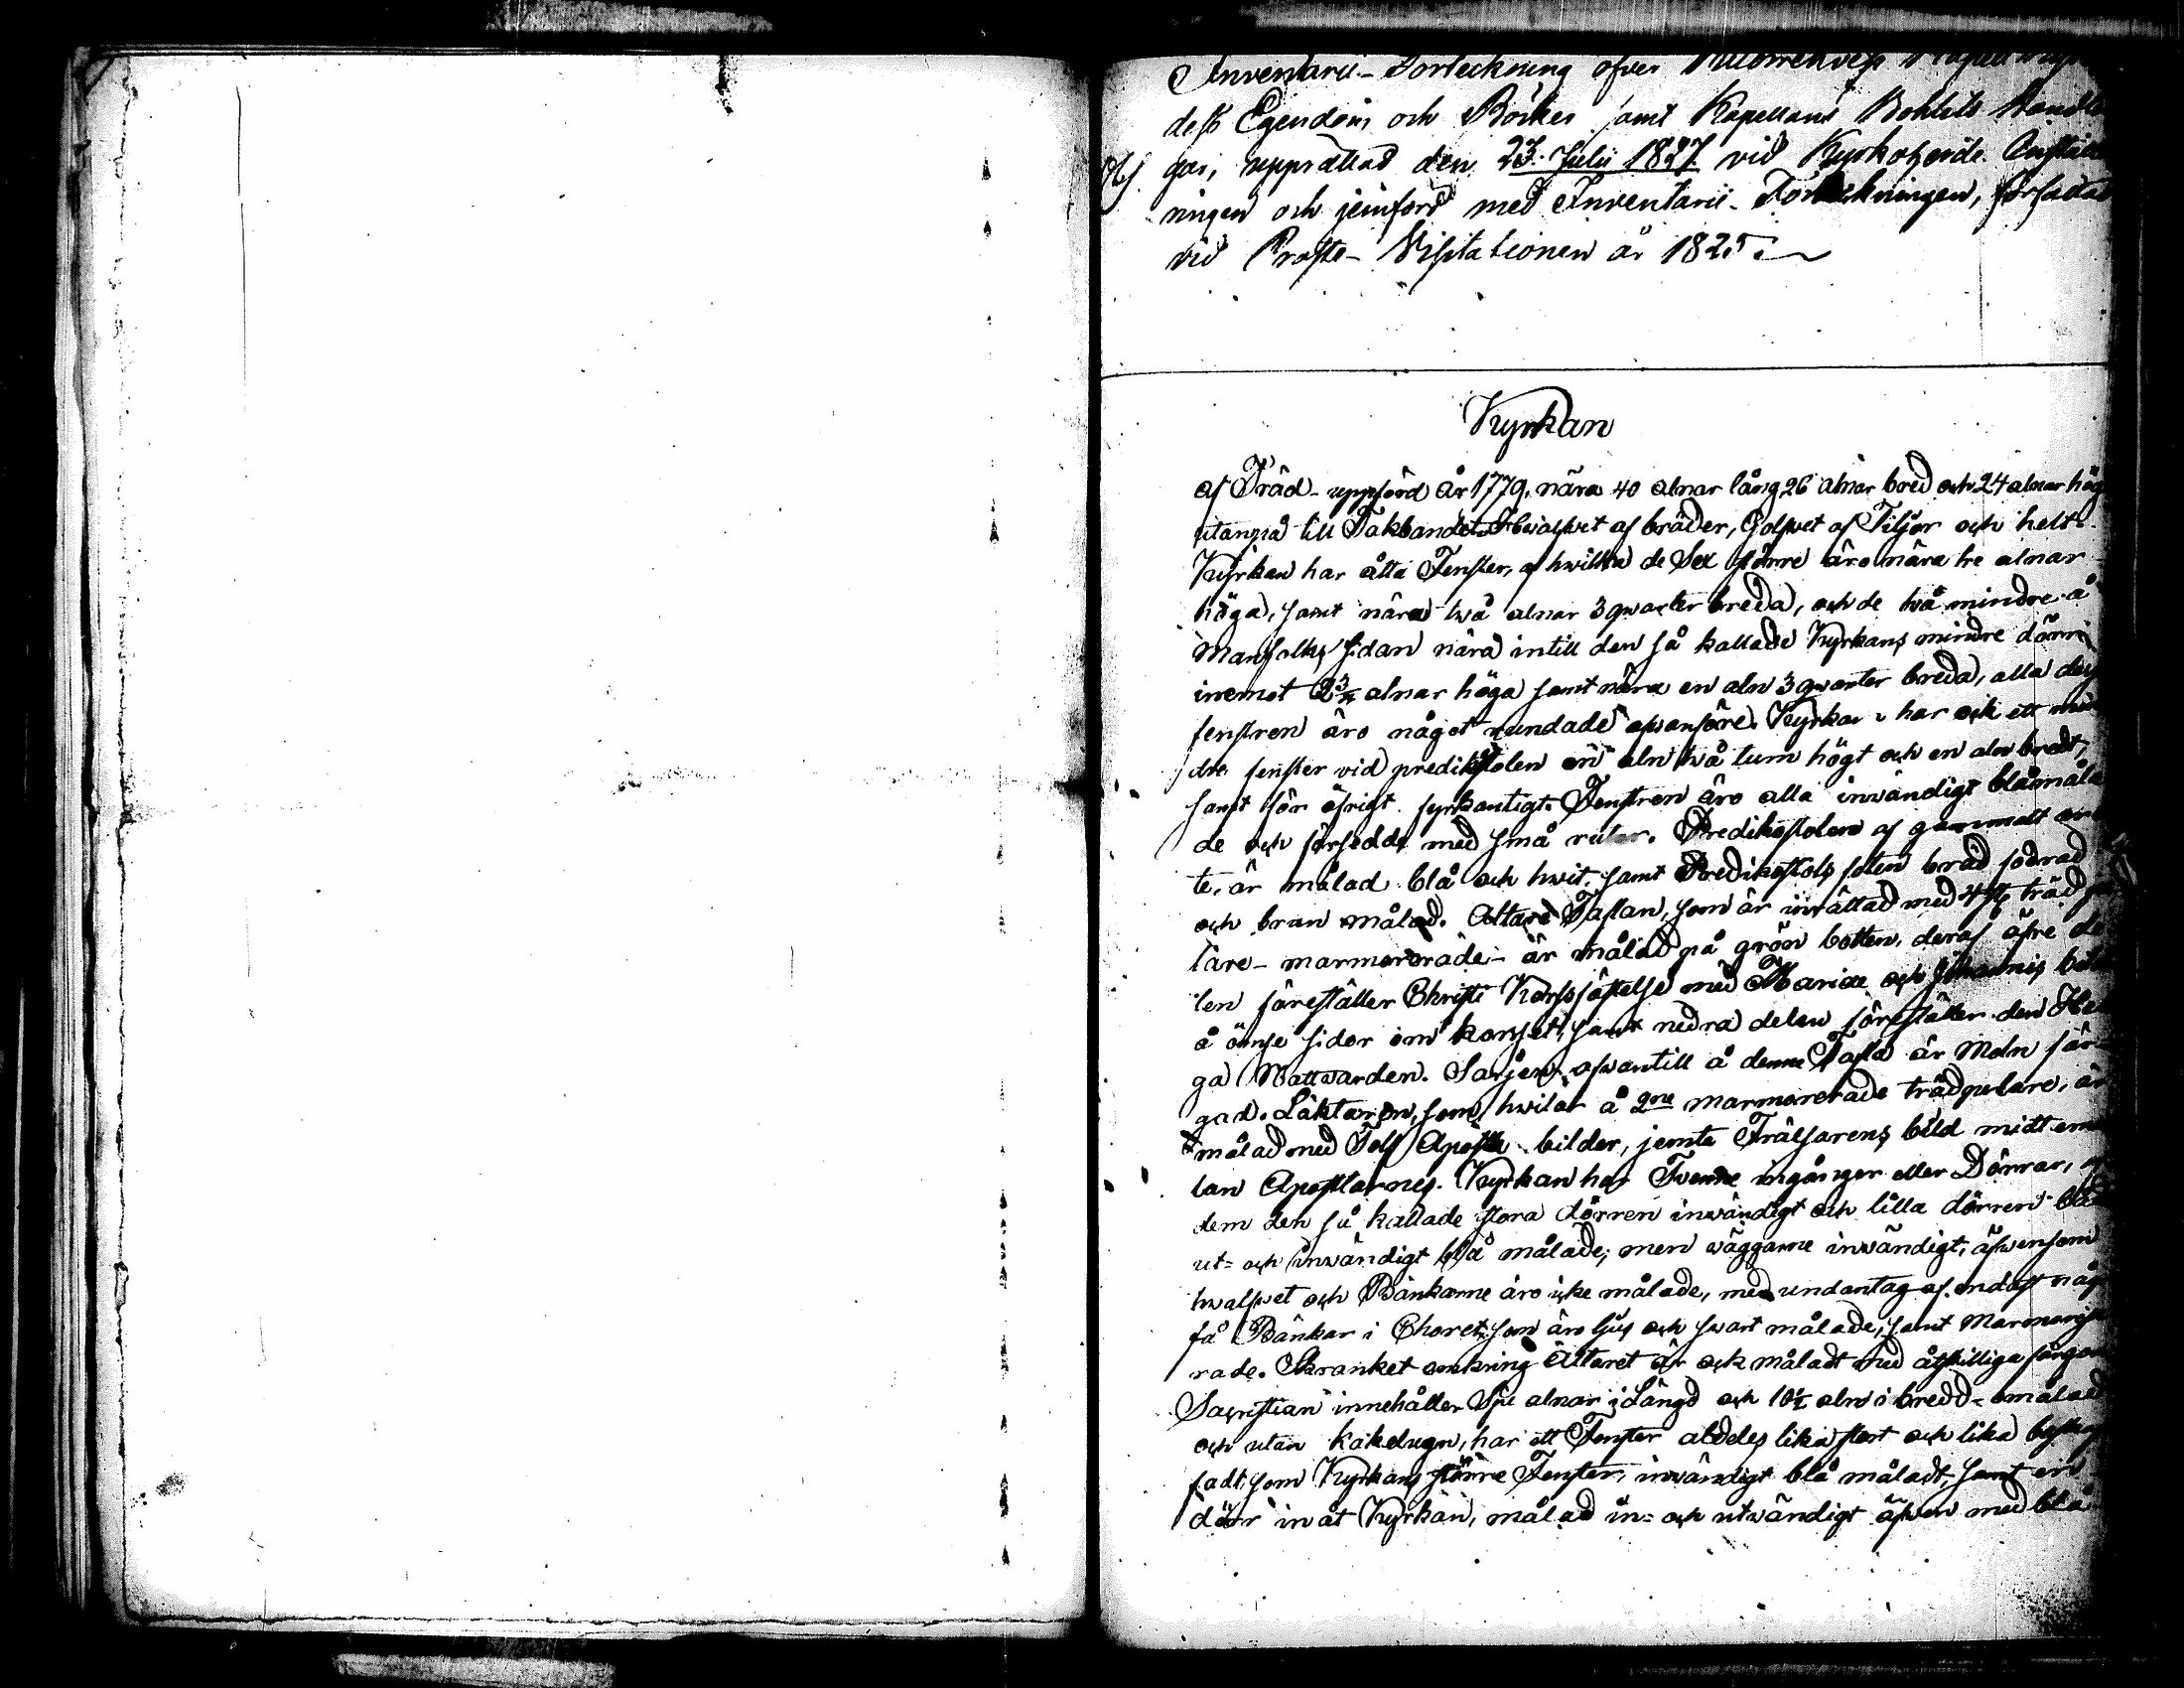 Inventarii-Förteckning öfver
dess Egendom och Böcker samt Kapellans Bohlets Handlin
gar, upprättad den 23. Julii 1827 vid Kyrkoherde Anställ
ningen och jemförd med Inventarii-Förteckningen, författad
vid Proste-Visitationen år 1825.
Kyrkan
af Träd- uppförd år 1779, nära 40 alnar lång 26 alnar bred och 24 alnar hög
utanpå till Takbandet. Hwalfvet af bräder, Golfvet af Tiljor och helt.
Kyrkan har åtta Fenster, af hwilka de Sex större äro nära tre alnar
höga, samt nära twå alnar 3 qwarter breda, och de två mindre å
Manfolks sidan nära intill den så kallade Kyrkans mindre dörr
inemot 2¾ alnar höga samt nära en aln 3 qwarter breda, alla dess
fenstren äro något rundade ofvanföre. Kyrkan har ock ett min
dre fenster vid predikstolen en aln två tum högt och en aln bredt,
samt för öfrigt fyrkantigt. Fenstren äro alla inwändigt blåmåla
de och försedde med små rutor. Predikstolen af gammalt
te, är målad blå och hwit, samt Predikstols foten bräd fodrad
och brun målad. Altare Taflan, som är inrättad med 4 st träd
lare- marmorerade- är målad på grön botten, deraf öfre de
len föreställer Christi Korssfästelse med Mariæ och Johannis bild
å ömse sidor om korset, samt nedra delen föreställer den Heli
ga Nattwarden. Sarjen ofwantill å denne Tafla är Moln fär-
gad. Läktaren, som hwilar å 2ne marmorerade trädpelare, är
målad med Tolf Apostla bilder, jemte Frälsarens bild midt em
lan Apostlarnes. Kyrkan har Tvenne ingångar eller Dörrar, af
dem den så kallade stora dörren inwändigt och lilla dörren både
ut- och inwändigt blå målade; men wäggarne inwändigt, äfwensom
hwalfvet och Bänkarne äro icke målade, med undantag af endast någr
få Bänkar i Choret, som äro ljus och swart målade, samt Marmorise
rade. Skranket omkring Altaret är ock måladt med åtskilliga färgor
Sacristian innehåller Sju alnar i Längd och 10½ aln i bredd- omålad
och utan kakelugn, har ett Fenster aldeles lika stort och lika beskaf
fadt, som Kyrkans större Fenster, inwändigt blå måladt, samt en
dörr inåt Kyrkan, målad in- och utwändigt äfwen med blå